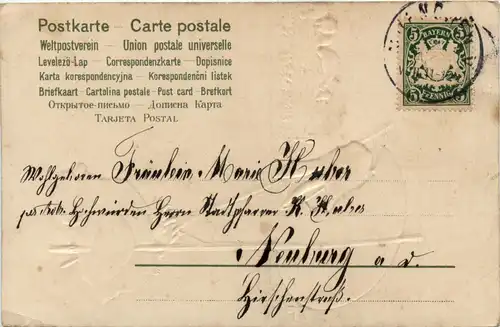 Postkarte – Carte postale
Weltpostverein – Union postale universelle
Levelező-Lap – Correspondenzkarte – Dopisnice
Karta korespondencyjna – Korespondenční lístek
Briefkaart – Cartolina postale – Post card – Brefkort
Открытое-письмо – Дописна Карта
Tarjeta Postal
5 BAYERN 5
5 PFENNIG 5
Wohlgeboren Fräulein Marie Huber
Hochwürden Herrn Stadtpfarrer K. Huber
Neuburg a d.
Hirschenstraß.